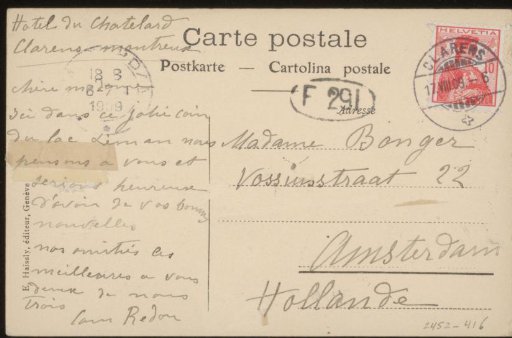 Hotel du Chatelard
Clarens-Montreux
Carte postale
Postkarte — Cartolina postale
HELVETIA
CLARENS
17.VIII.09. - 6
18 8
1909
F 291
Adresse
chère
ici dans ce jolie coin
du lac Léman nous
pensons a vous et
serions heureux
d'avoir de vos bonnes
nouvelles
nos amitiés les
meilleures a vous
deux de nous
trois
Cam Redon
Madame Bonger
Vossiusstraat 22
Amsterdam
Hollande
E. Haissly, éditeur, Genève
2452-416